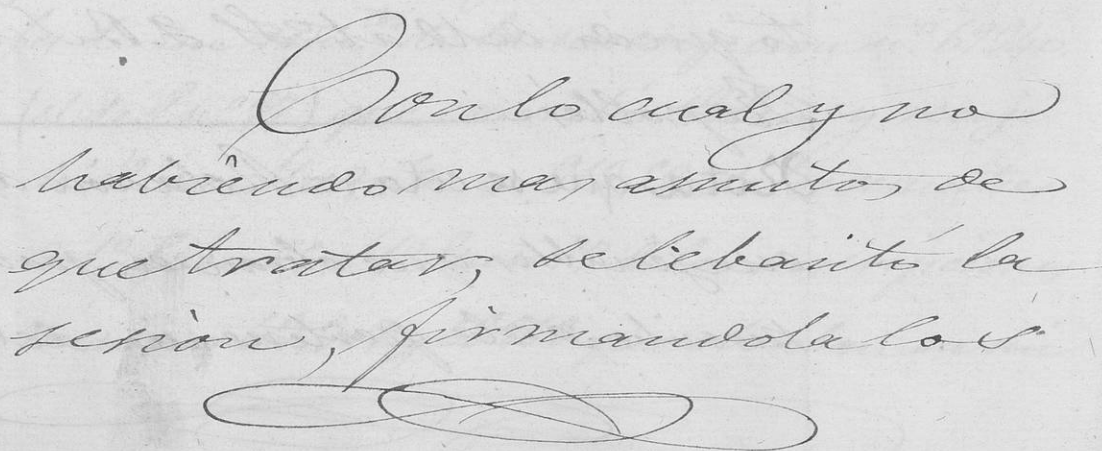 Con lo cual y no
habiendo mas asuntos de
que tratar, se lebantó la
sesion, firmandola los